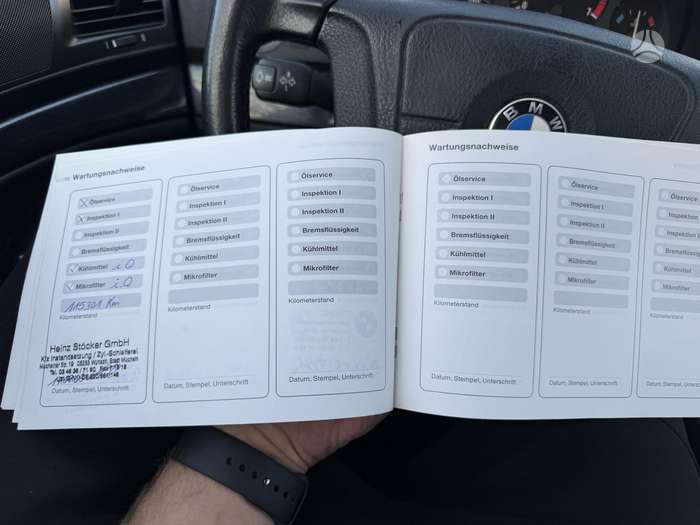 BMW
Wartungsnachweise
Ölservice
Inspektion I
Inspektion II
Bremsflüssigkeit
Kühlmittel i.O
Mikrofilter i.O
115301 Km
Kilometerstand
Heinz Stöcker GmbH
Kfz Instandsetzung / Zyl.-Schleiferei
Datum, Stempel, Unterschrift
Ölservice
Inspektion I
Inspektion II
Bremsflüssigkeit
Kühlmittel
Mikrofilter
Kilometerstand
Datum, Stempel, Unterschrift
Ölservice
Inspektion I
Inspektion II
Bremsflüssigkeit
Kühlmittel
Mikrofilter
Kilometerstand
Datum, Stempel, Unterschrift
Wartungsnachweise
Ölservice
Inspektion I
Inspektion II
Bremsflüssigkeit
Kühlmittel
Mikrofilter
Kilometerstand
Datum, Stempel, Unterschrift
Ölservice
Inspektion I
Inspektion II
Bremsflüssigkeit
Kühlmittel
Mikrofilter
Kilometerstand
Datum, Stempel, Unterschrift
Ölservice
Inspektion I
Inspektion II
Bremsflüssigkeit
Kühlmittel
Mikrofilter
Kilometerstand